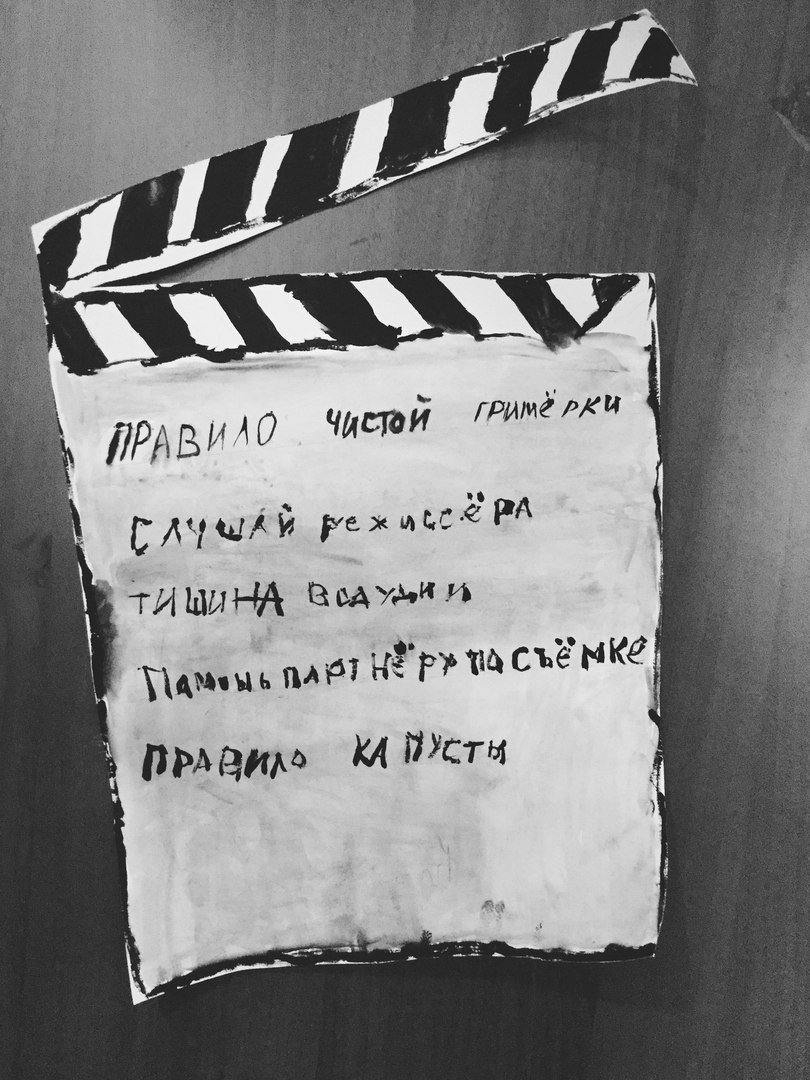 ПРАВИЛО ЧИСТОЙ ГРИМЁРКИ
СЛУШАЙ РЕЖИССЁРА
ТИШИНА ВОДУДИИ
ПАМОЩЬ ПАРТНЁРУ ПО СЪЁМКЕ
ПРАВИЛО КАПУСТЫ